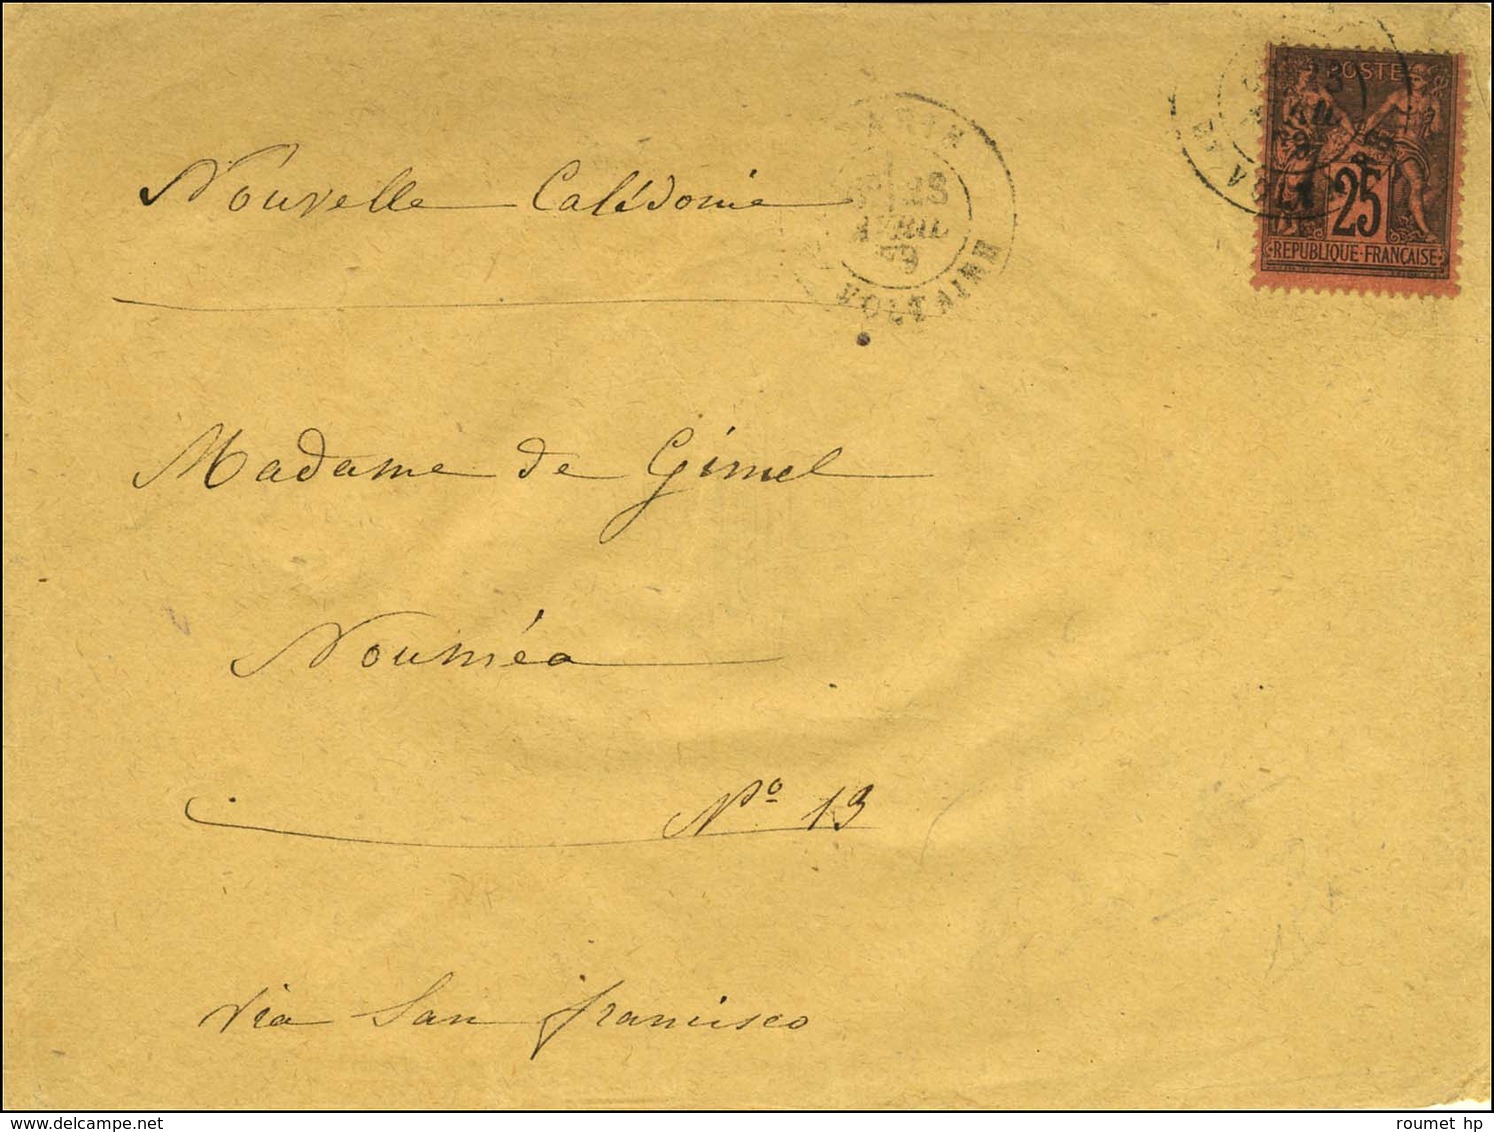 POSTE
25
RÉPUBLIQUE FRANÇAISE
PARIS
AVRIL
79
VOLTAIRE
Nouvelle Calédonie
Madame de Gimel
Nouméa
No 13
via San francisco
delcampe.net
roumet hp